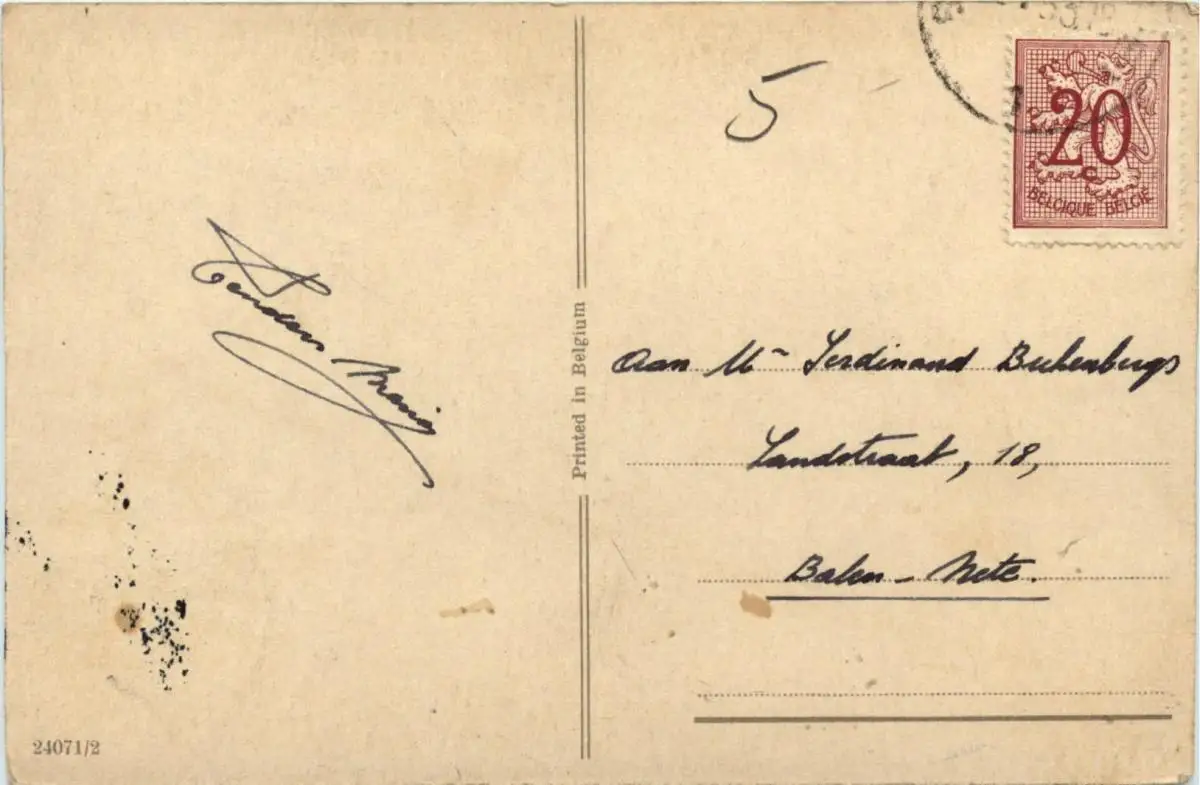 5
20
BELGIQUE BELGIË
Printed in Belgium
Aan Mr Ferdinand Buchenbergs
Landstraat, 18,
Balen - Nete.
24071/2